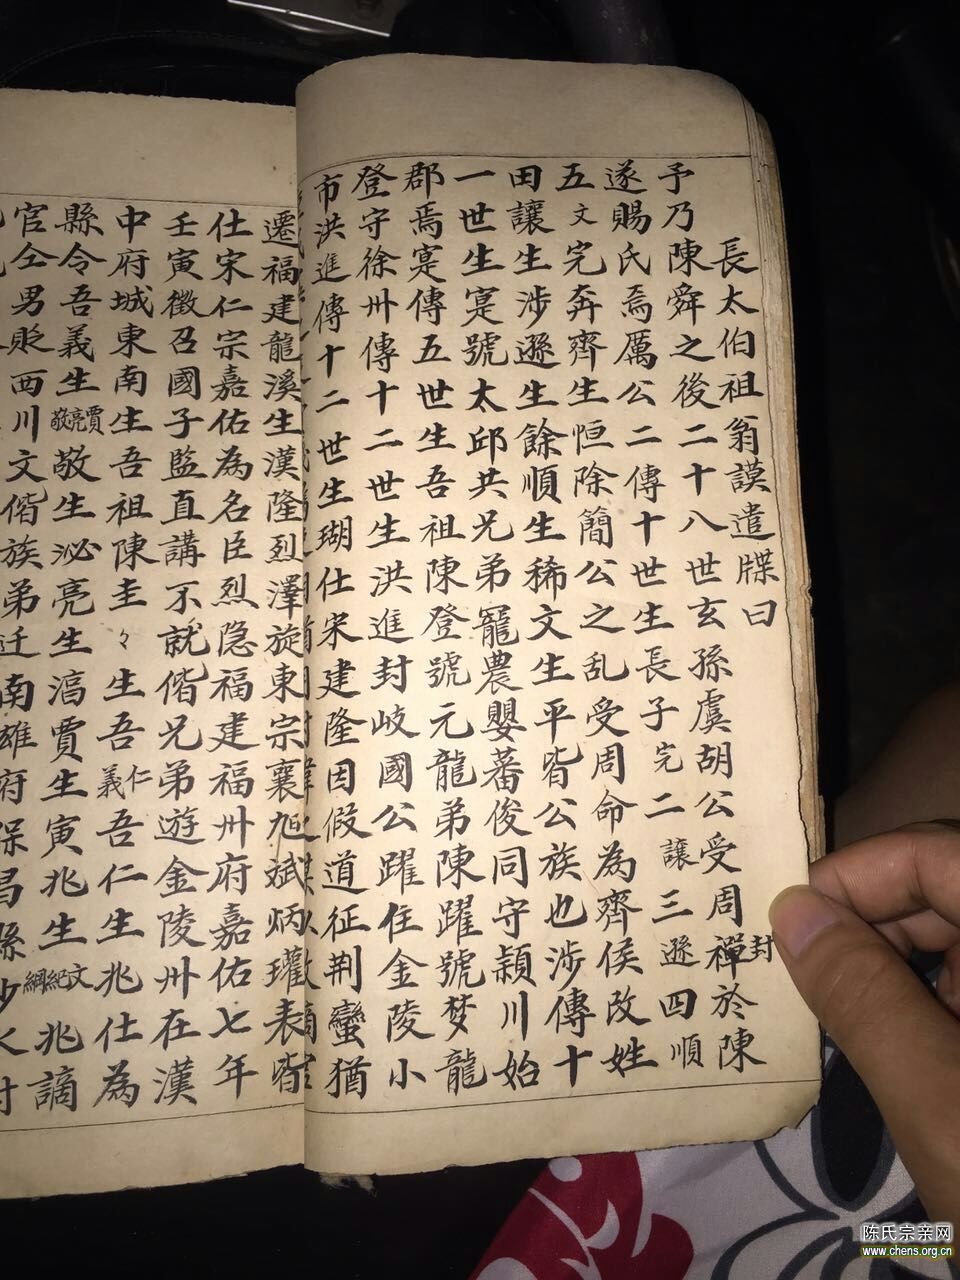 長太伯祖翁謨遣牒曰
予乃陳舜之後二十八世玄孫虞胡公受周禪封於陳
遂賜氏焉厲公二傳十世生長子完二讓三遜四順
五文完奔齊生恒除簡公之乱受周命為齊侯改姓
田讓生涉遜生餘順生稀文生平皆公族也涉傳十
一世生寔號太邱共兄弟寵農嬰蕃俊同守穎川始
郡焉寔傳五世生吾祖陳登號元龍弟陳躍號梦龍
登守徐卅傳十二世生洪進封岐國公躍住金陵小
市洪進傳十二世生瑚仕宋建隆因假道征荆蠻猶
遷福建龍溪生漢隆烈澤旋東宗襄旭斌炳瓘表皆
仕宋仁宗嘉佑為名臣烈隐福建福卅府嘉佑七年
壬寅徵召國子監直講不就偕兄弟遊金陵卅在漢
中府城東南生吾祖陳圭々生吾仁義吾仁生兆仕為
縣令吾義生敬亮賈敬生泌亮生滈賈生寅兆生文紀綱兆謫
官仝男貶西川文偕族弟迁南雄府保昌縣沙水村
陈氏宗亲网
www.chens.org.cn